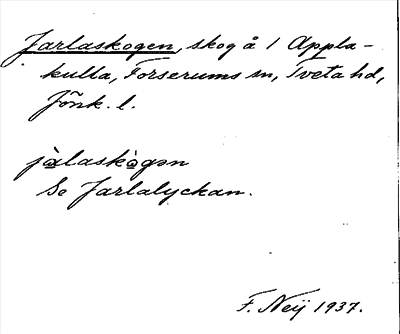 Jarlaskogen, skog å 1 Appla-
kulla, Forserums sn, Tveta hd,
Jönk. l.
jàlaskògən
Se Jarlalyckan.
F. Neij 1937.